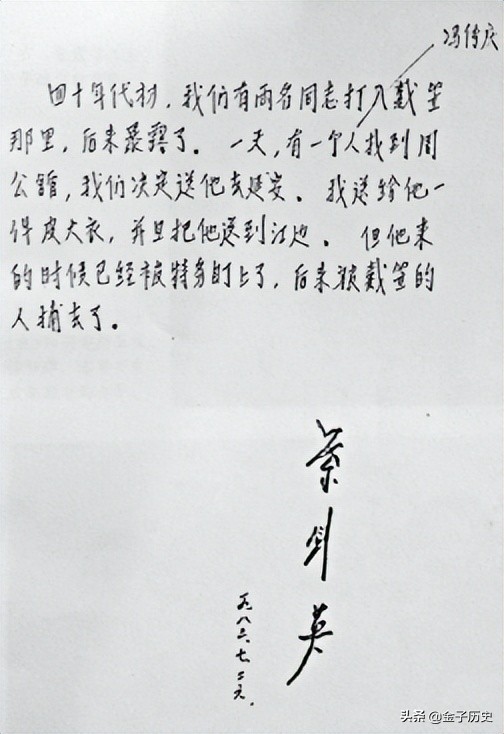 冯传庆
四十年代初，我们有两名同志打入戴笠
那里，后来暴露了。一天，有一个人找到周
公馆，我们决定送他去延安。我送给他一
件皮大衣，并且把他送到江边。但他来
的时候已经被特务盯上了，后来被戴笠的
人捕去了。
叶剑英
一九八三、七、二九.
头条@金子历史